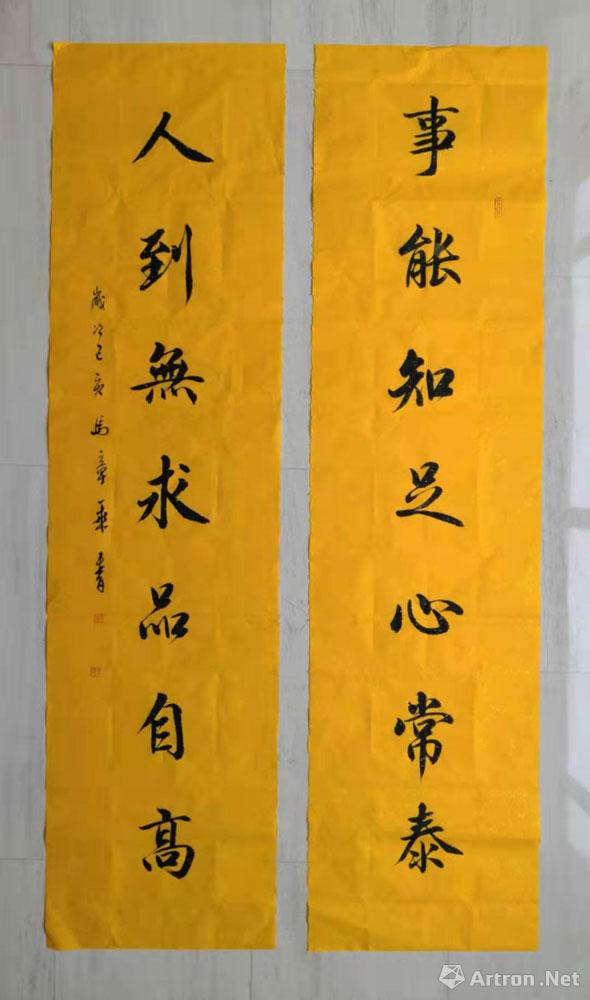 事能知足心常泰
人到無求品自高
歲次己亥馬章乘書
Artron.Net